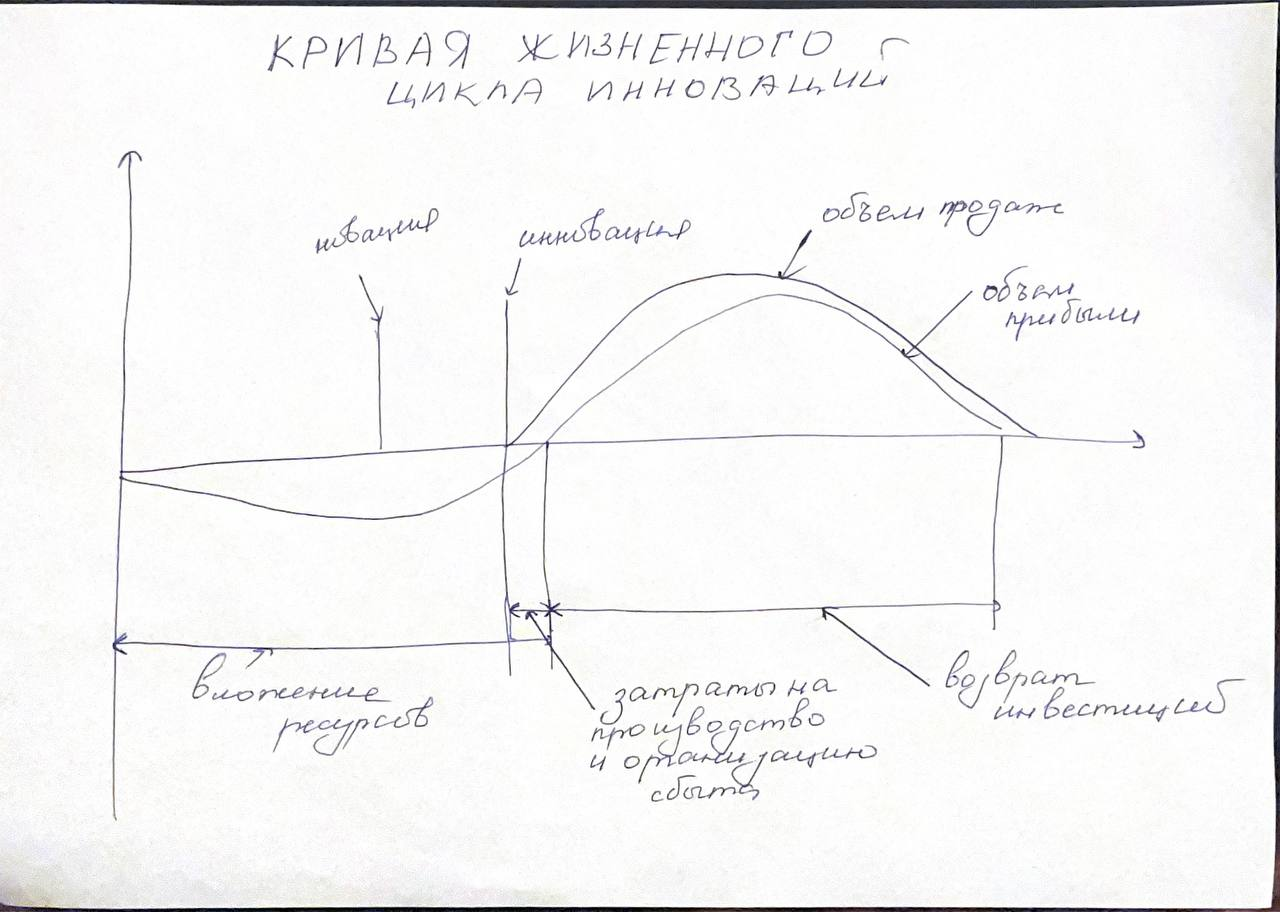 КРИВАЯ ЖИЗНЕННОГО
ЦИКЛА ИННОВАЦИЙ
новация
инновация
объем продаж
объем
прибыли
вложение
ресурсов
затраты на
производство
и организацию
сбыта
возврат
инвестиций